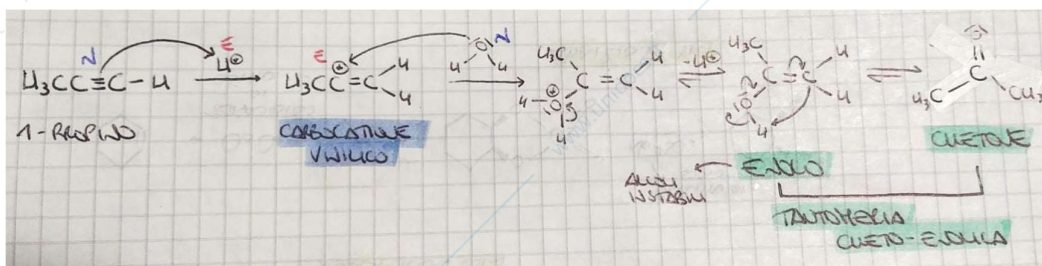 N E
H₃CC≡C-H
H⊕
1-PROPINO
E
H₃CC⊕=C H H
CARBOCATIONE
VINILICO
N
H O H
H₃C C=C H H
H-O⊕ H
-H⊕
H₃C C=C H H
O H
ENOLO
ALCOLI
INSTABILI
O
C
H₃C CH₃
CHETONE
TAUTOMERIA
CHETO-ENOLICA